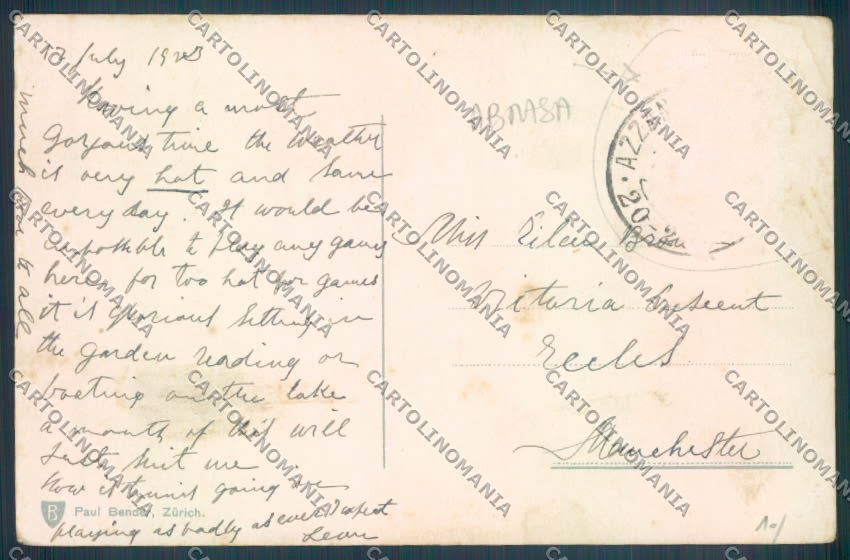 17 July 1923
Having a most
gorgeous time the weather
is very hot and same
every day. It would be
impossible to play any games
here far too hot for games
it is glorious sitting in
the garden reading or
boating on the lake
a month of this will
just suit me
How is tennis going
playing as badly as ever I expect
much love to all
ABNASA
AZZA
20
Miss Eileen
Victoria Crescent
Eccles
Manchester
Paul Bender, Zürich.
CARTOLINOMANIA